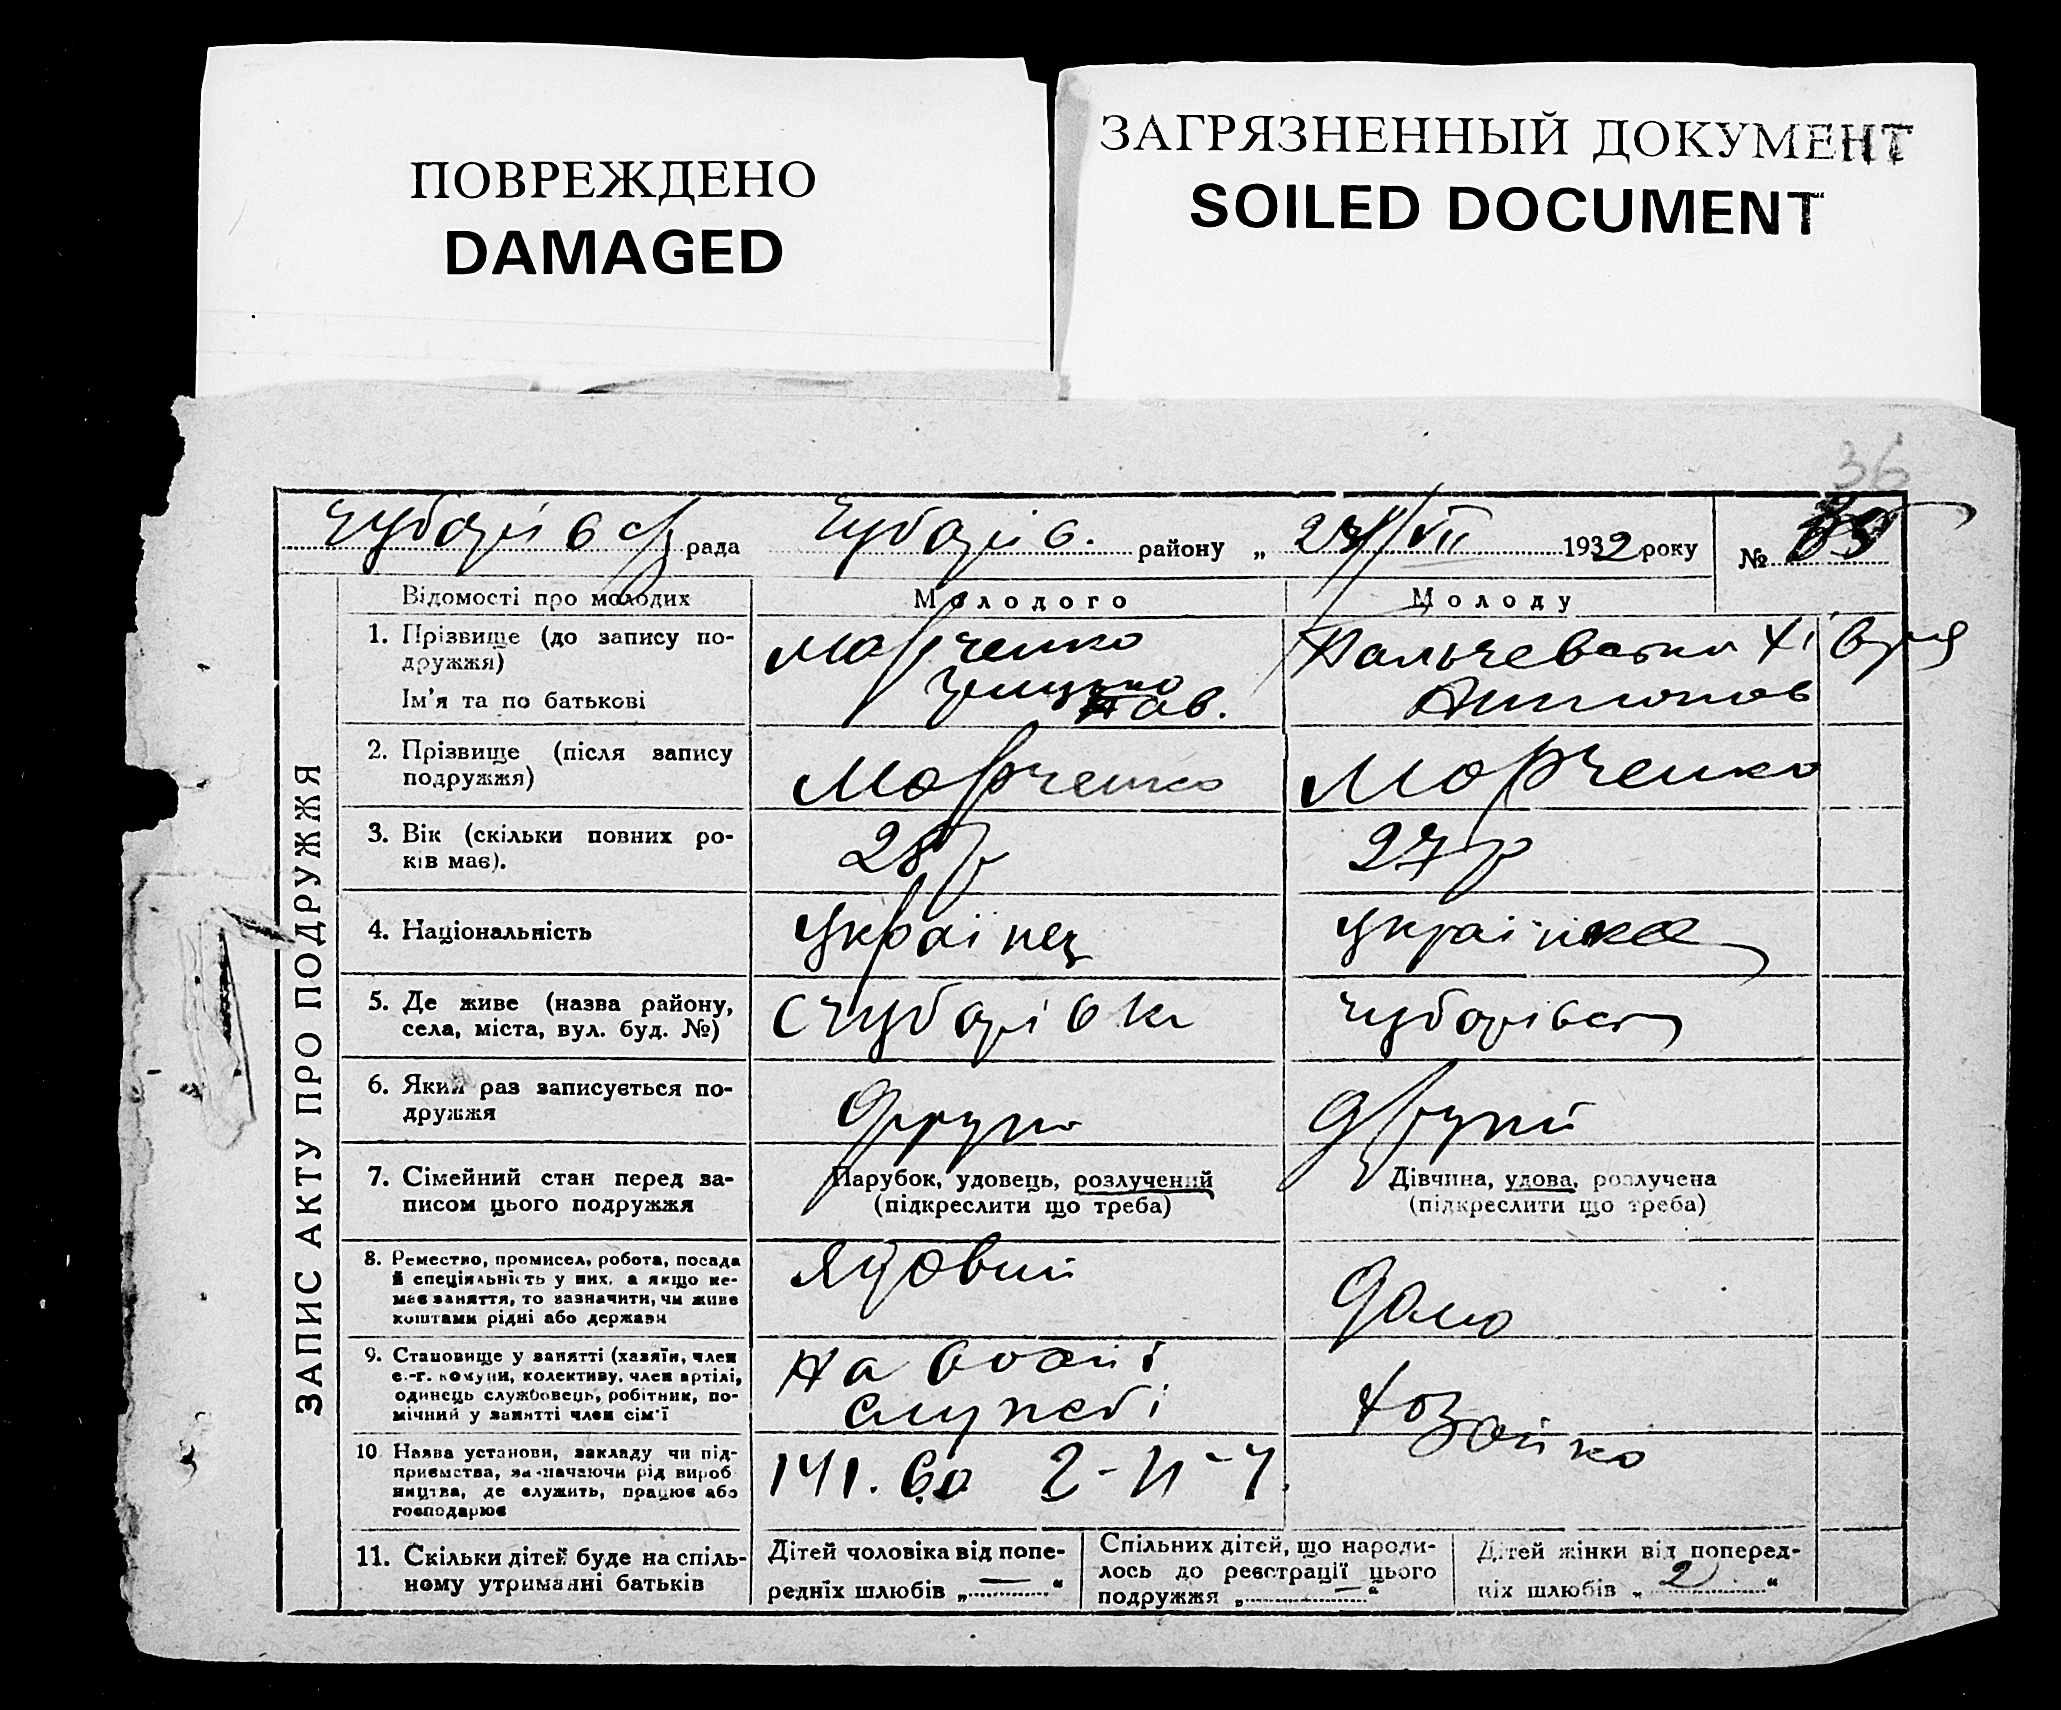 ПОВРЕЖДЕНО
DAMAGED
ЗАГРЯЗНЕННЫЙ ДОКУМЕНТ
SOILED DOCUMENT
36
Чубарів с/р рада Чубарів. району „ /VII 1932 року №
ЗАПИС АКТУ ПРО ПОДРУЖЖЯ
Відомості про молодих
Молодого
Молоду
1. Прізвище (до запису по-
дружжя)
Ім'я та по батькові
Марченко
Пав.
Антонов
2. Прізвище (після запису
подружжя)
Марченко
Марченко
3. Вік (скільки повних ро-
ків має).
28 р
27 р
4. Національність
Українец
Українка
5. Де живе (назва району,
села, міста, вул. буд. №)
с Чубарівка
6. Який раз записується по-
дружжя
другий
7. Сімейний стан перед за-
писом цього подружжя
Парубок, удовець, розлучений
(підкреслити що треба)
Дівчина, удова, розлучена
(підкреслити що треба)
8. Ремество, промисел, робота, посада
й спеціяльність у них, а якщо не-
має заняття, то зазначити, чи живе
коштами рідні або держави
9. Становище у занятті (хазяїн, член
с.-г. комуни, колективу, член артілі,
одинець службовець, робітник, по-
мічний у занятті член сім'ї
На
службі
10 Назва установи, закладу чи під-
приємства, зазначаючи рід вироб
ництва, де служить, працює або
господарює
11. Скільки дітей буде на спіль-
ному утриманні батьків
Дітей чоловіка від попе-
редніх шлюбів „ — “
Спільних дітей, що народи-
лось до реєстрації цього
подружжя „ — “
Дітей жінки від поперед-
ніх шлюбів „ 2 “